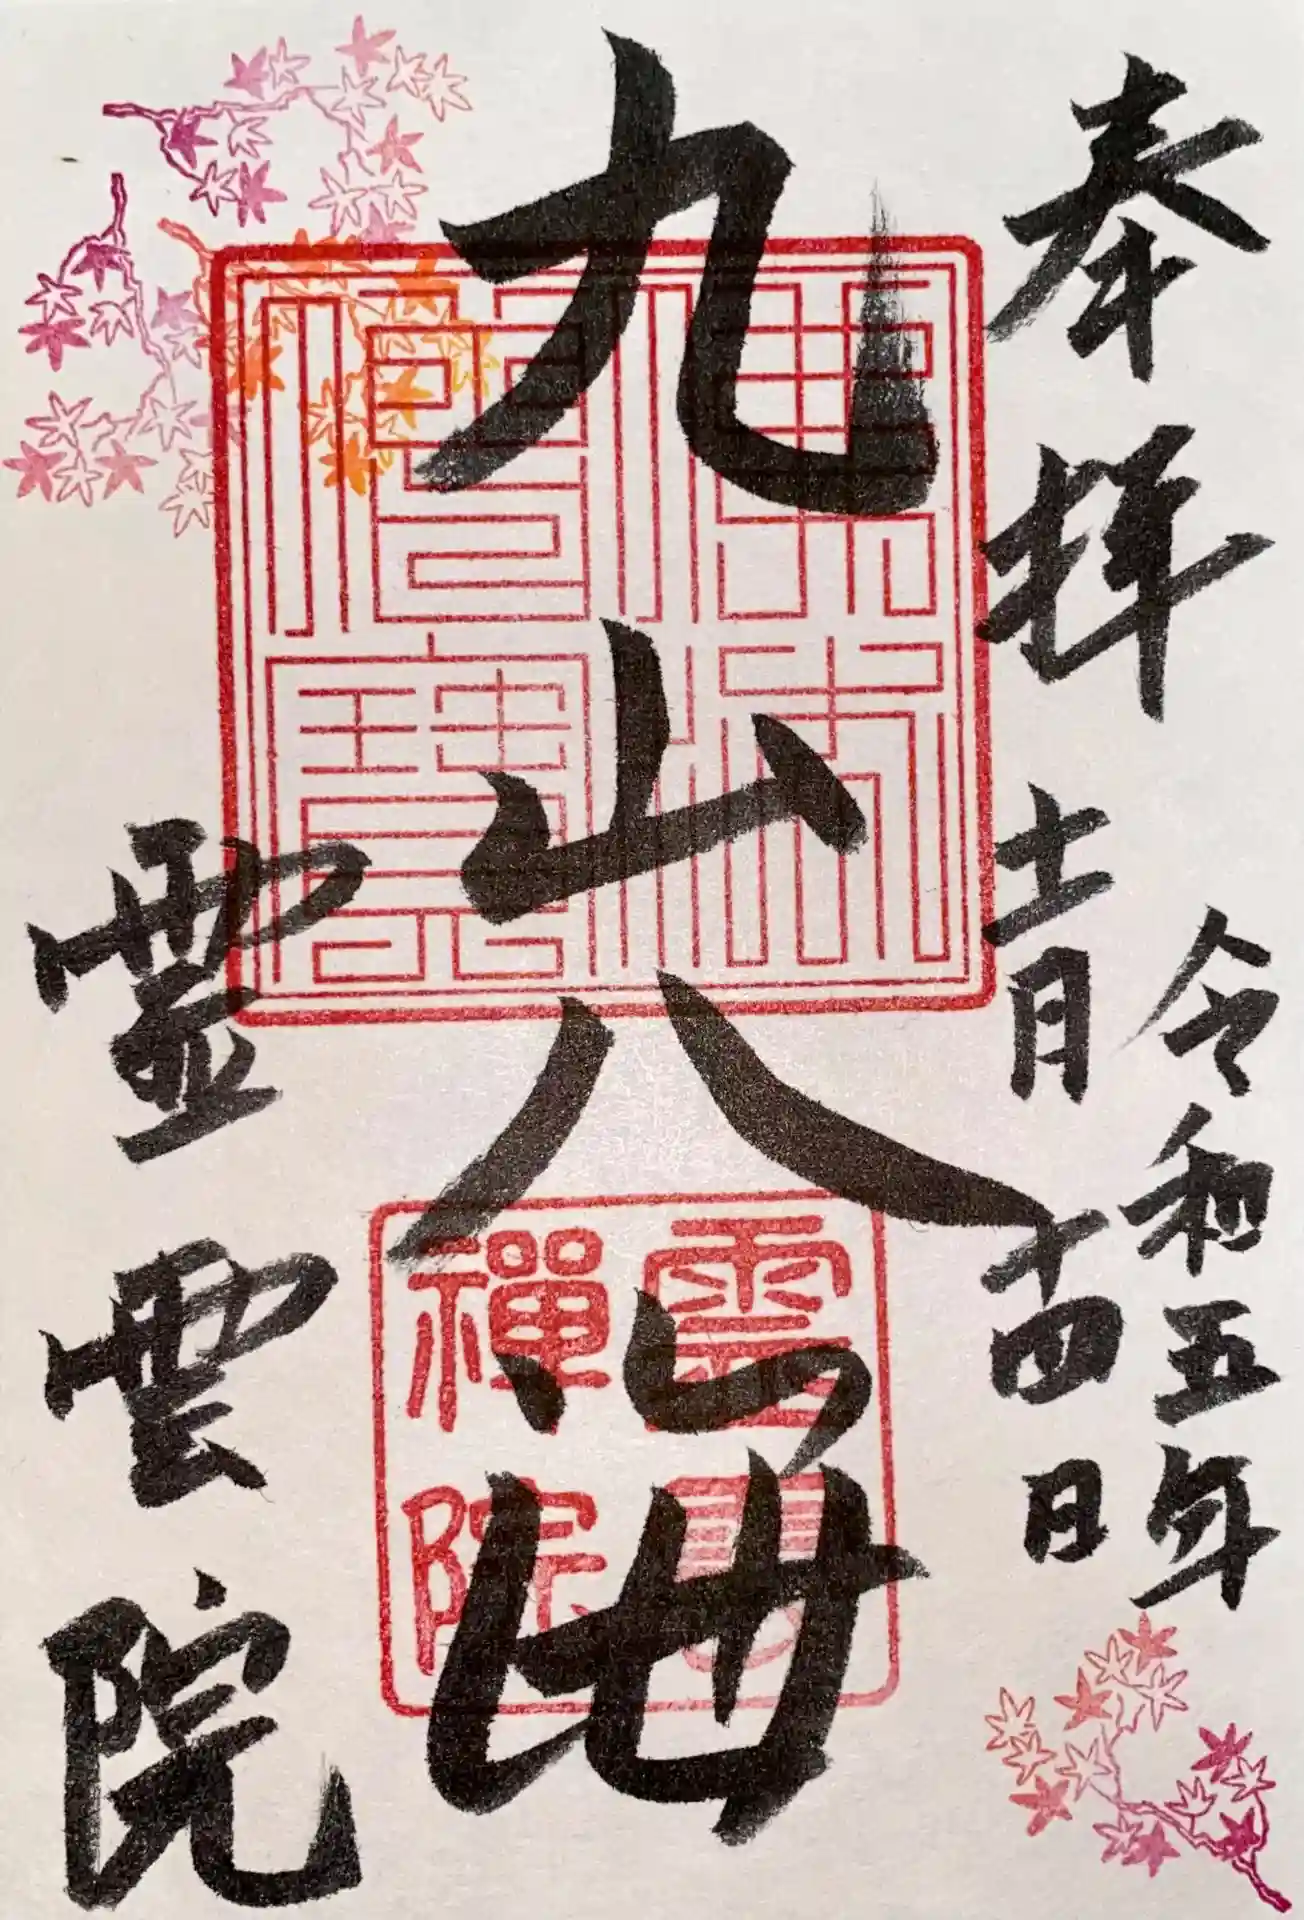 奉拝
令和五年
十一月十四日
九山八海
霊雲院
佛法僧寶
禪院